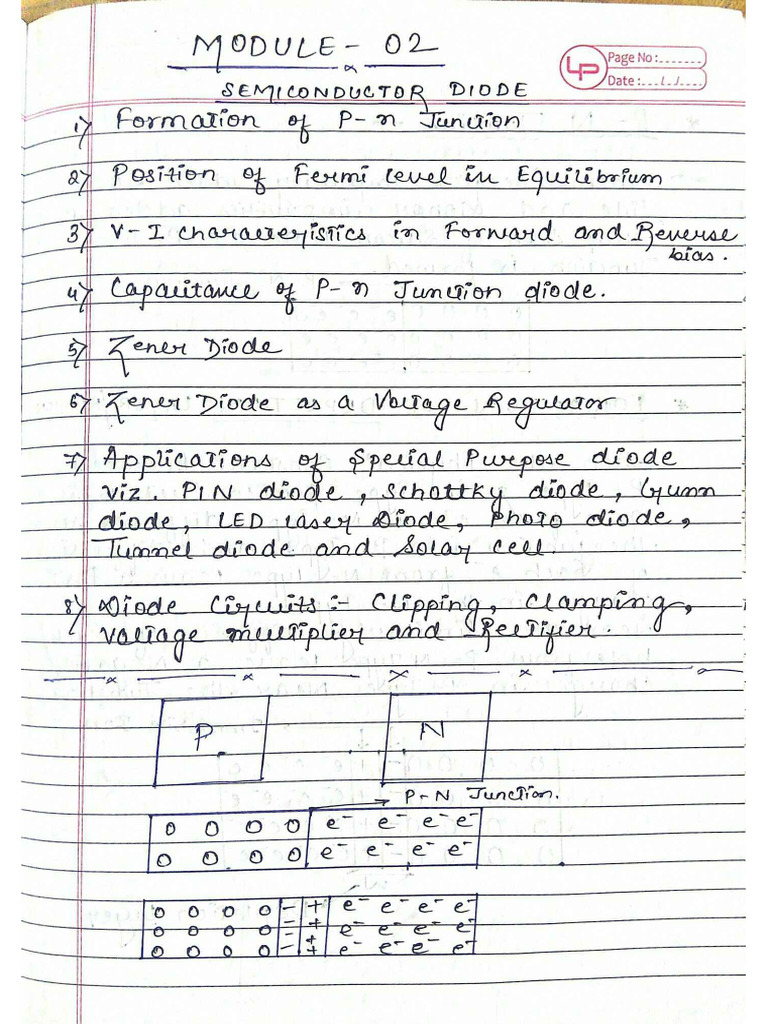 MODULE - 02
LP
Page No :.......
Date :....L./....
SEMICONDUCTOR DIODE
1) Formation of P-n Junction
2) Position of Fermi level in Equilibrium
3) V-I characteristics in Forward and Reverse
bias.
4) Capacitance of P-n Junction diode.
5) Zener Diode
6) Zener Diode as a Voltage Regulator
7) Applications of Special Purpose diode
viz PIN diode, Schottky diode, Gunn
diode, LED laser Diode, Photo diode,
Tunnel diode and Solar cell
8) Diode Circuits :- Clipping, Clamping,
Voltage multiplier and Rectifier.
P N
→ P-N Junction.
O O O O e⁻ e⁻ e⁻ e⁻
O O O O e⁻ e⁻ e⁻ e⁻
O O O O - + e⁻ e⁻ e⁻ e⁻
O O O O - + e⁻ e⁻ e⁻ e⁻
O O O O - + e⁻ e⁻ e⁻ e⁻